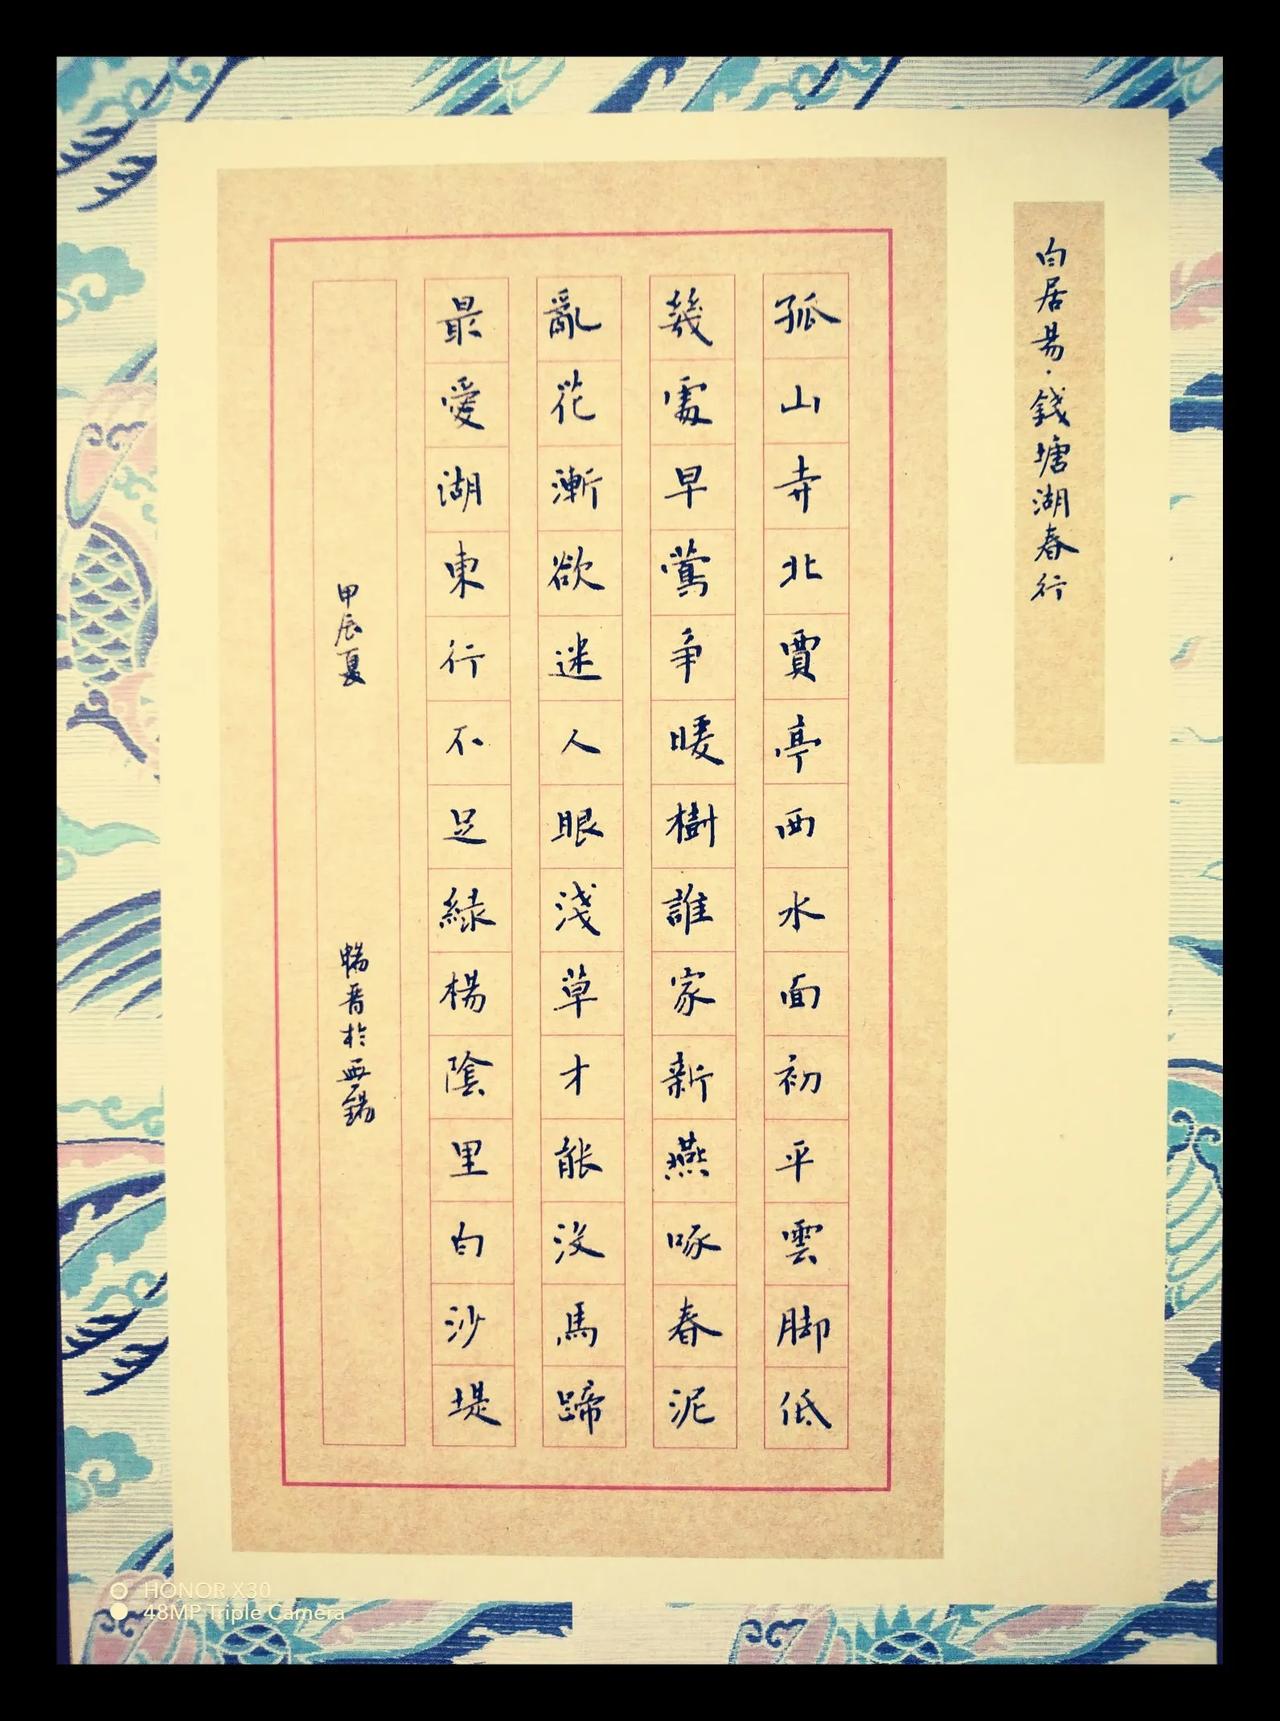 白居易·錢塘湖春行
孤山寺北賈亭西水面初平雲脚低
幾處早鶯爭暖樹誰家新燕啄春泥
亂花漸欲迷人眼淺草才能没馬蹄
最愛湖東行不足綠楊陰里白沙堤
甲辰夏
暢晋於无錫
HONOR X30
48MP Triple Camera